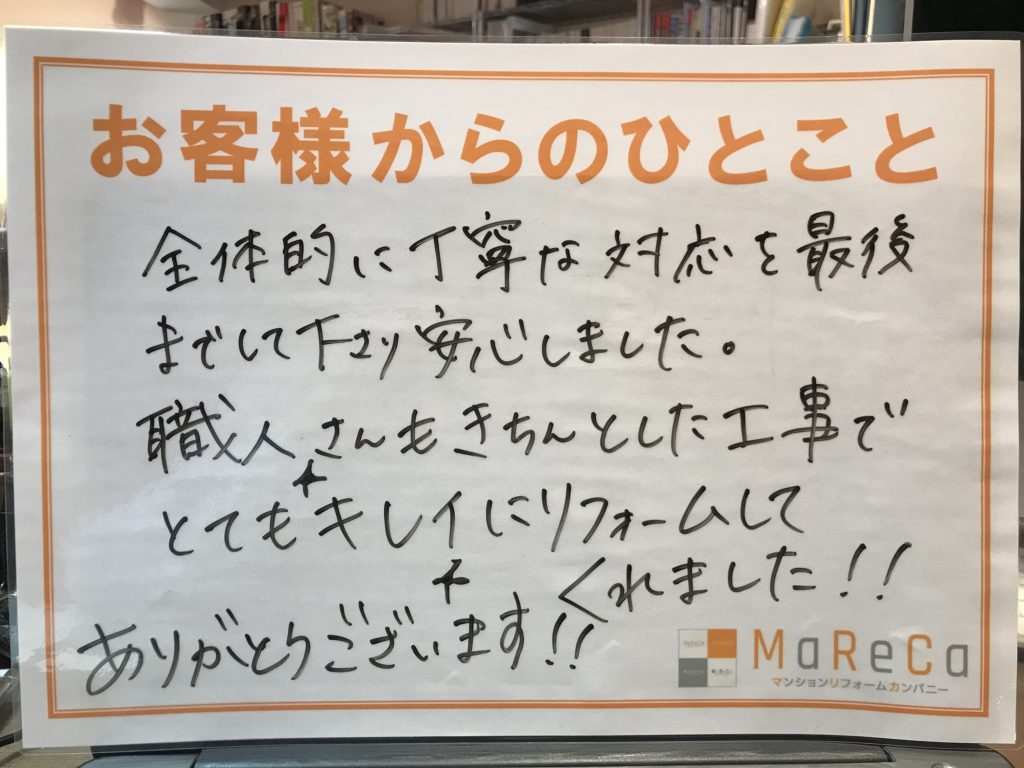 お客様からのひとこと
全体的に丁寧な対応を最後
までして下さり安心しました。
職人さんもきちんとした工事で
とてもキレイにリフォームして
くれました!!
ありがとうございます!!
MaReCa
マンションリフォームカンパニー